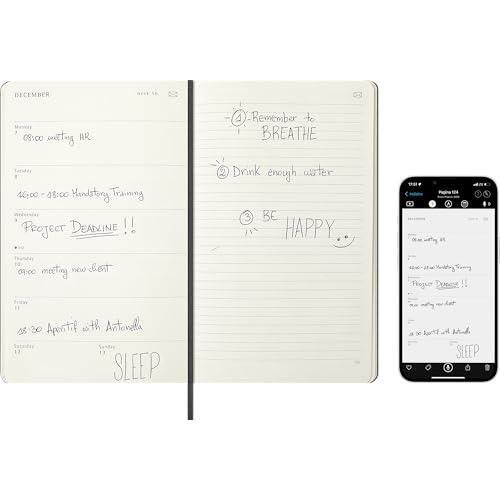 DECEMBER
week 50
Monday
7
08:00 meeting HR
Tuesday
8
16:00 - 18:00 Mandatory Training
Wednesday
9
PROJECT DEADLINE !!
Thursday
10
09:00 meeting new client
Friday
11
18:30 Aperitif with Antonella
Saturday
12
Sunday
13
SLEEP
1 - Remember to
BREATHE
2 Drink enough water
3 BE
HAPPY
17:51
Indietro
Pagina 124
DECEMBER
08:00 meeting HR
16:00 - 18:00 Mandatory Training
PROJECT DEADLINE !!
09:00 meeting new client
18:30 Aperitif with Antonella
SLEEP